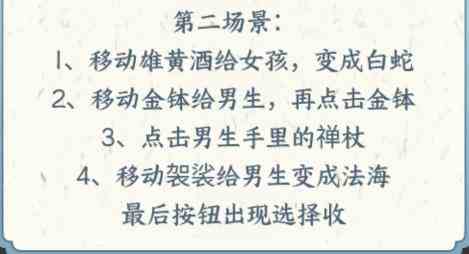 第二场景：
1、移动雄黄酒给女孩，变成白蛇
2、移动金钵给男生，再点击金钵
3、点击男生手里的禅杖
4、移动袈裟给男生变成法海
最后按钮出现选择收